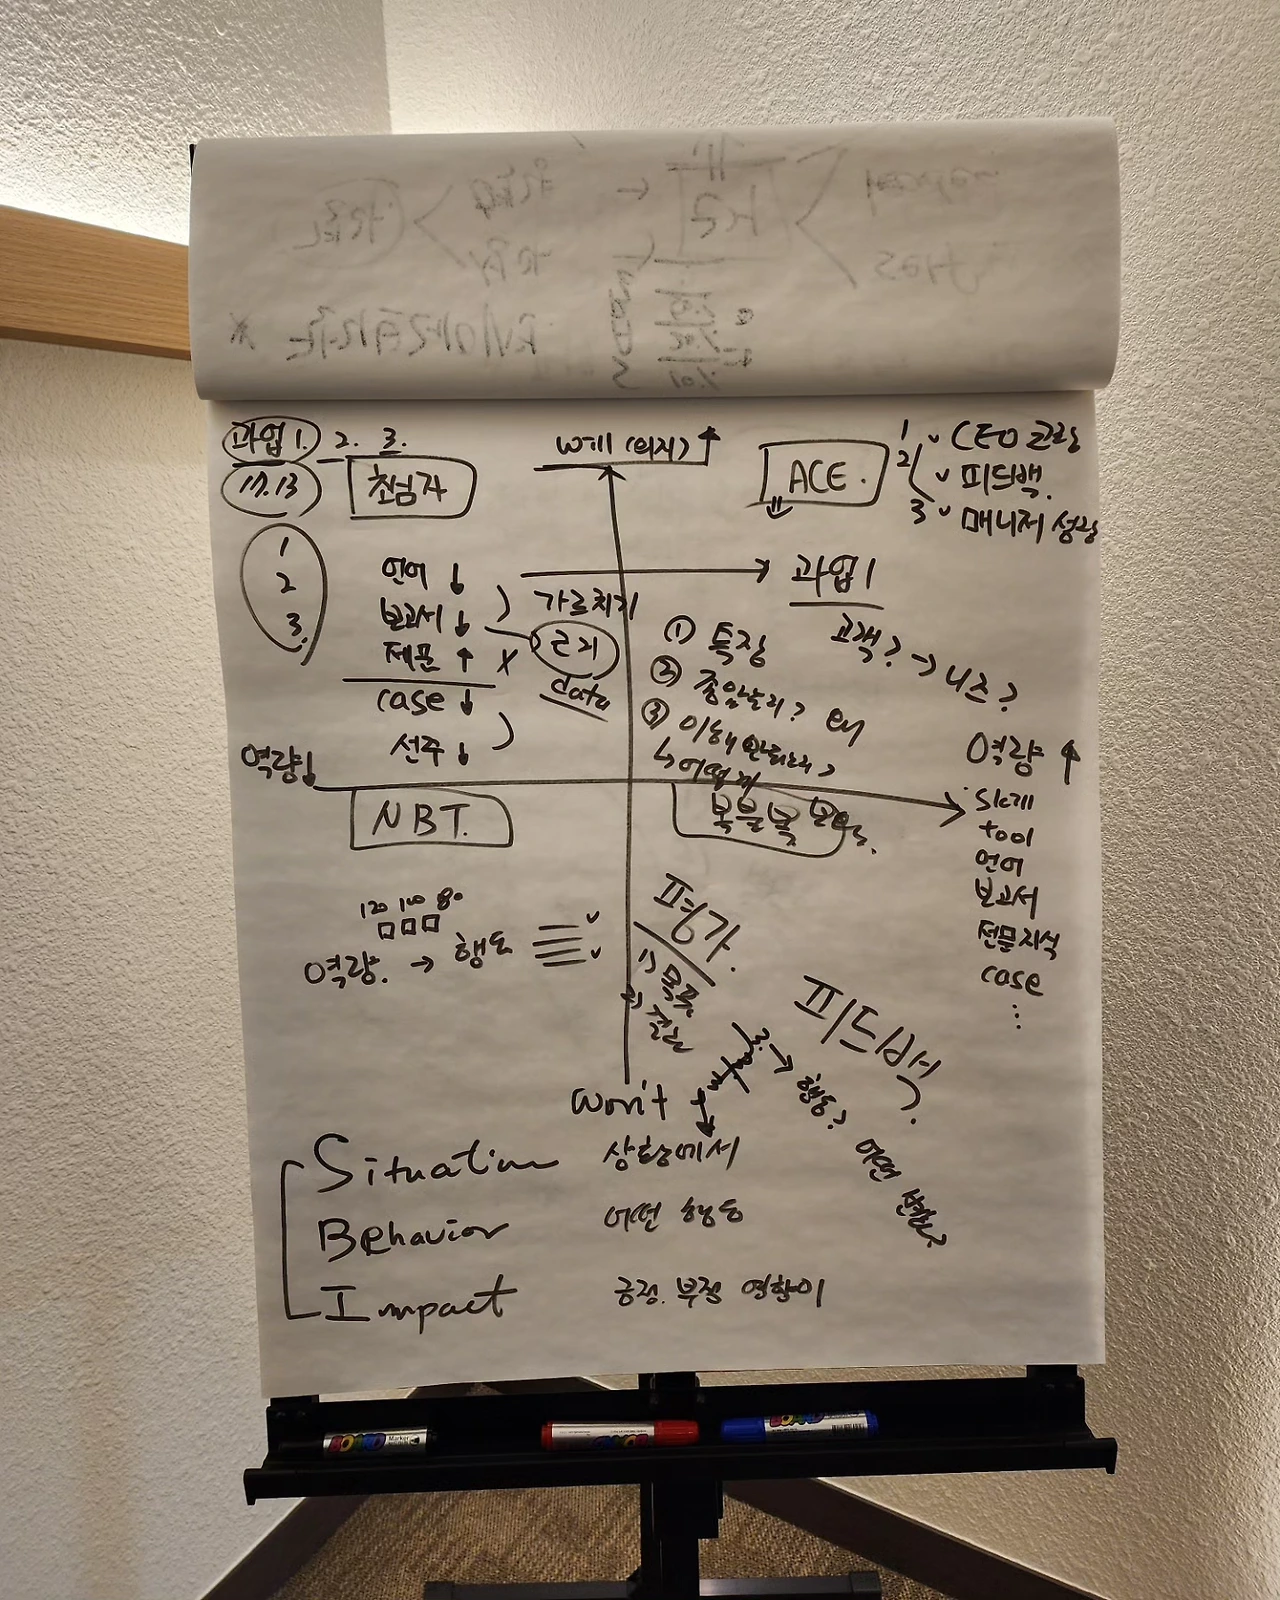 과업 1. 2. 3.
17.13
초심자
will (의지) ↑
ACE.
1 ✓ CEO 코칭
2 ✓ 피드백.
3 ✓ 매니저 성장
1
2
3.
언어 ↓
보고서 ↓
제품 ↑ X
case ↓
선주 ↓
가르치기
근거
data
→ 과업 1
고객? → 니즈?
① 특장
② 중요한지? 왜
③ 이해
↳ 어떻게
역량 ↓
역량 ↑
NBT.
복붙복
skill
tool
언어
보고서
전문지식
case
...
120 100 80
역량. → 행동
평가.
1) 목표
2) 결과
피드백?
→ 행동?
어떤 변화?
won't
Situation 상황에서
Behavior 어떤 행동
Impact 긍정. 부정 영향이
BOARD Marker
BOARD
BOARD